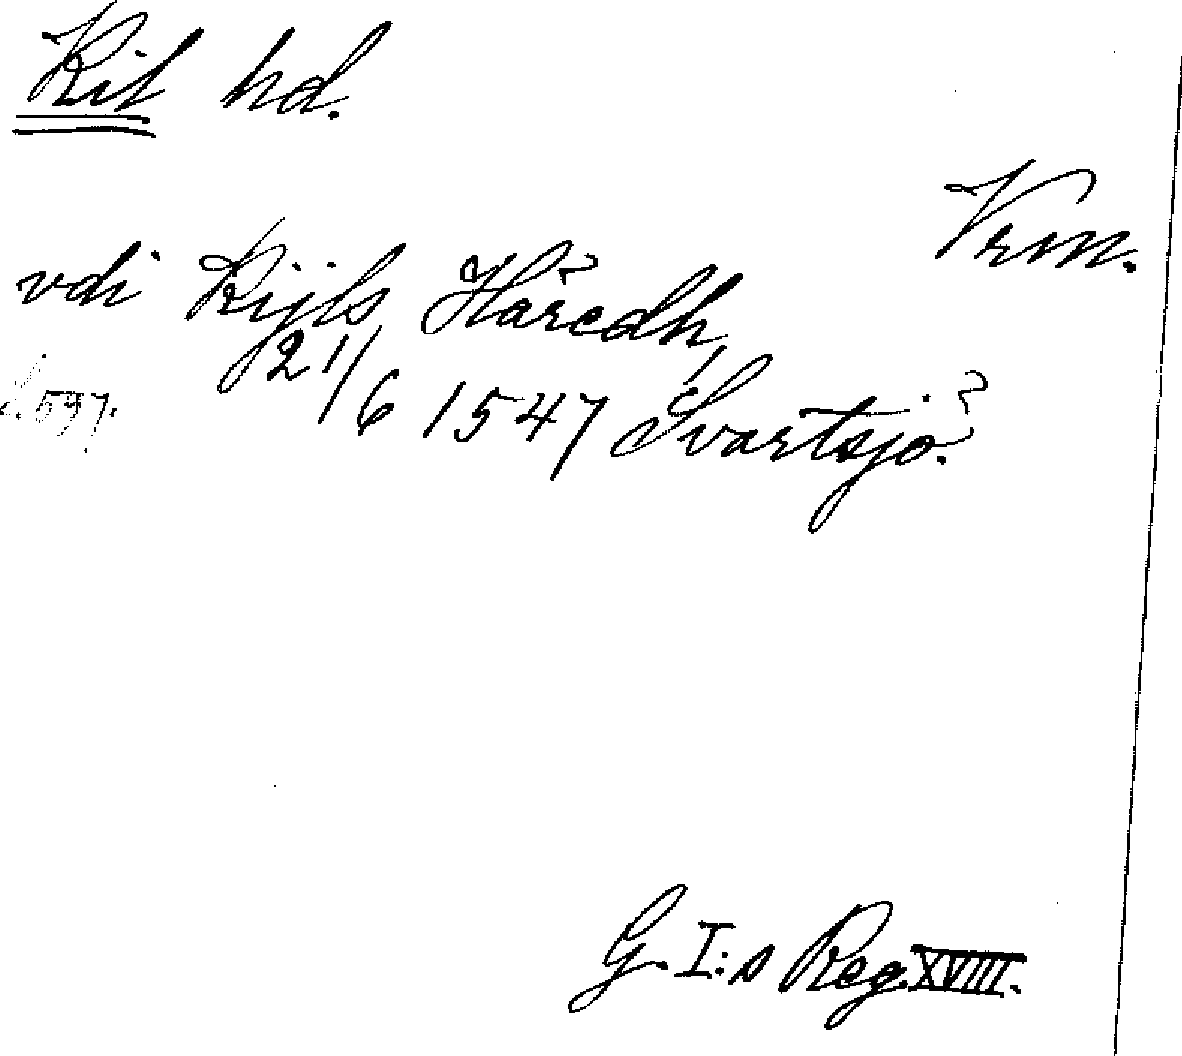 Kil hd.
Vrm.
vdi Kijls Häredh,
21/6 1547 Svartsjö.
S. 597.
G. I:s Reg. XVIII.